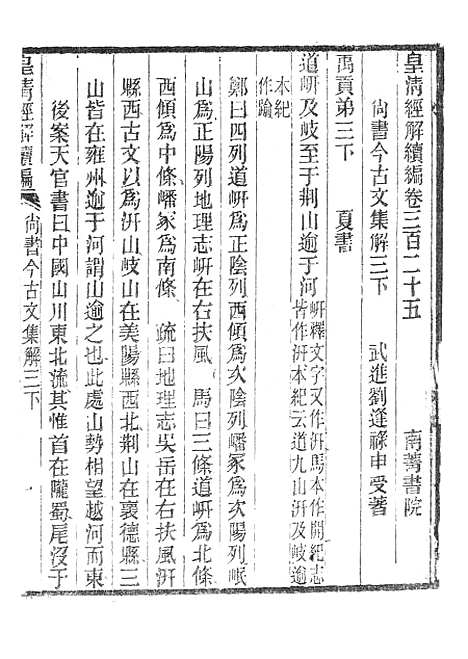 皇清經解續編卷三百二十五　南菁書院
尚書今古文集解三下　武進劉逢祿申受著
禹貢弟三下　夏書
道岍及岐至于荆山逾于河岍釋文字又作汧馬本作開紀志
皆作汧本紀云道九山汧及岐逾
本紀
作踰
鄭曰四列道岍爲正陰列西傾爲次陰列嶓冢爲次陽列岷
山爲正陽列地理志岍在右扶風　馬曰三條道岍爲北條
西傾爲中條嶓冢爲南條　疏曰地理志吳岳在右扶風汧
縣西古文以爲汧山岐山在美陽縣西北荆山在褱德縣三
山皆在雍州逾于河謂山逾之也此處山勢相望越河而東
後案天官書曰中國山川東北流其惟首在隴蜀尾沒于
皇清經解續編　尚書今古文集解三下